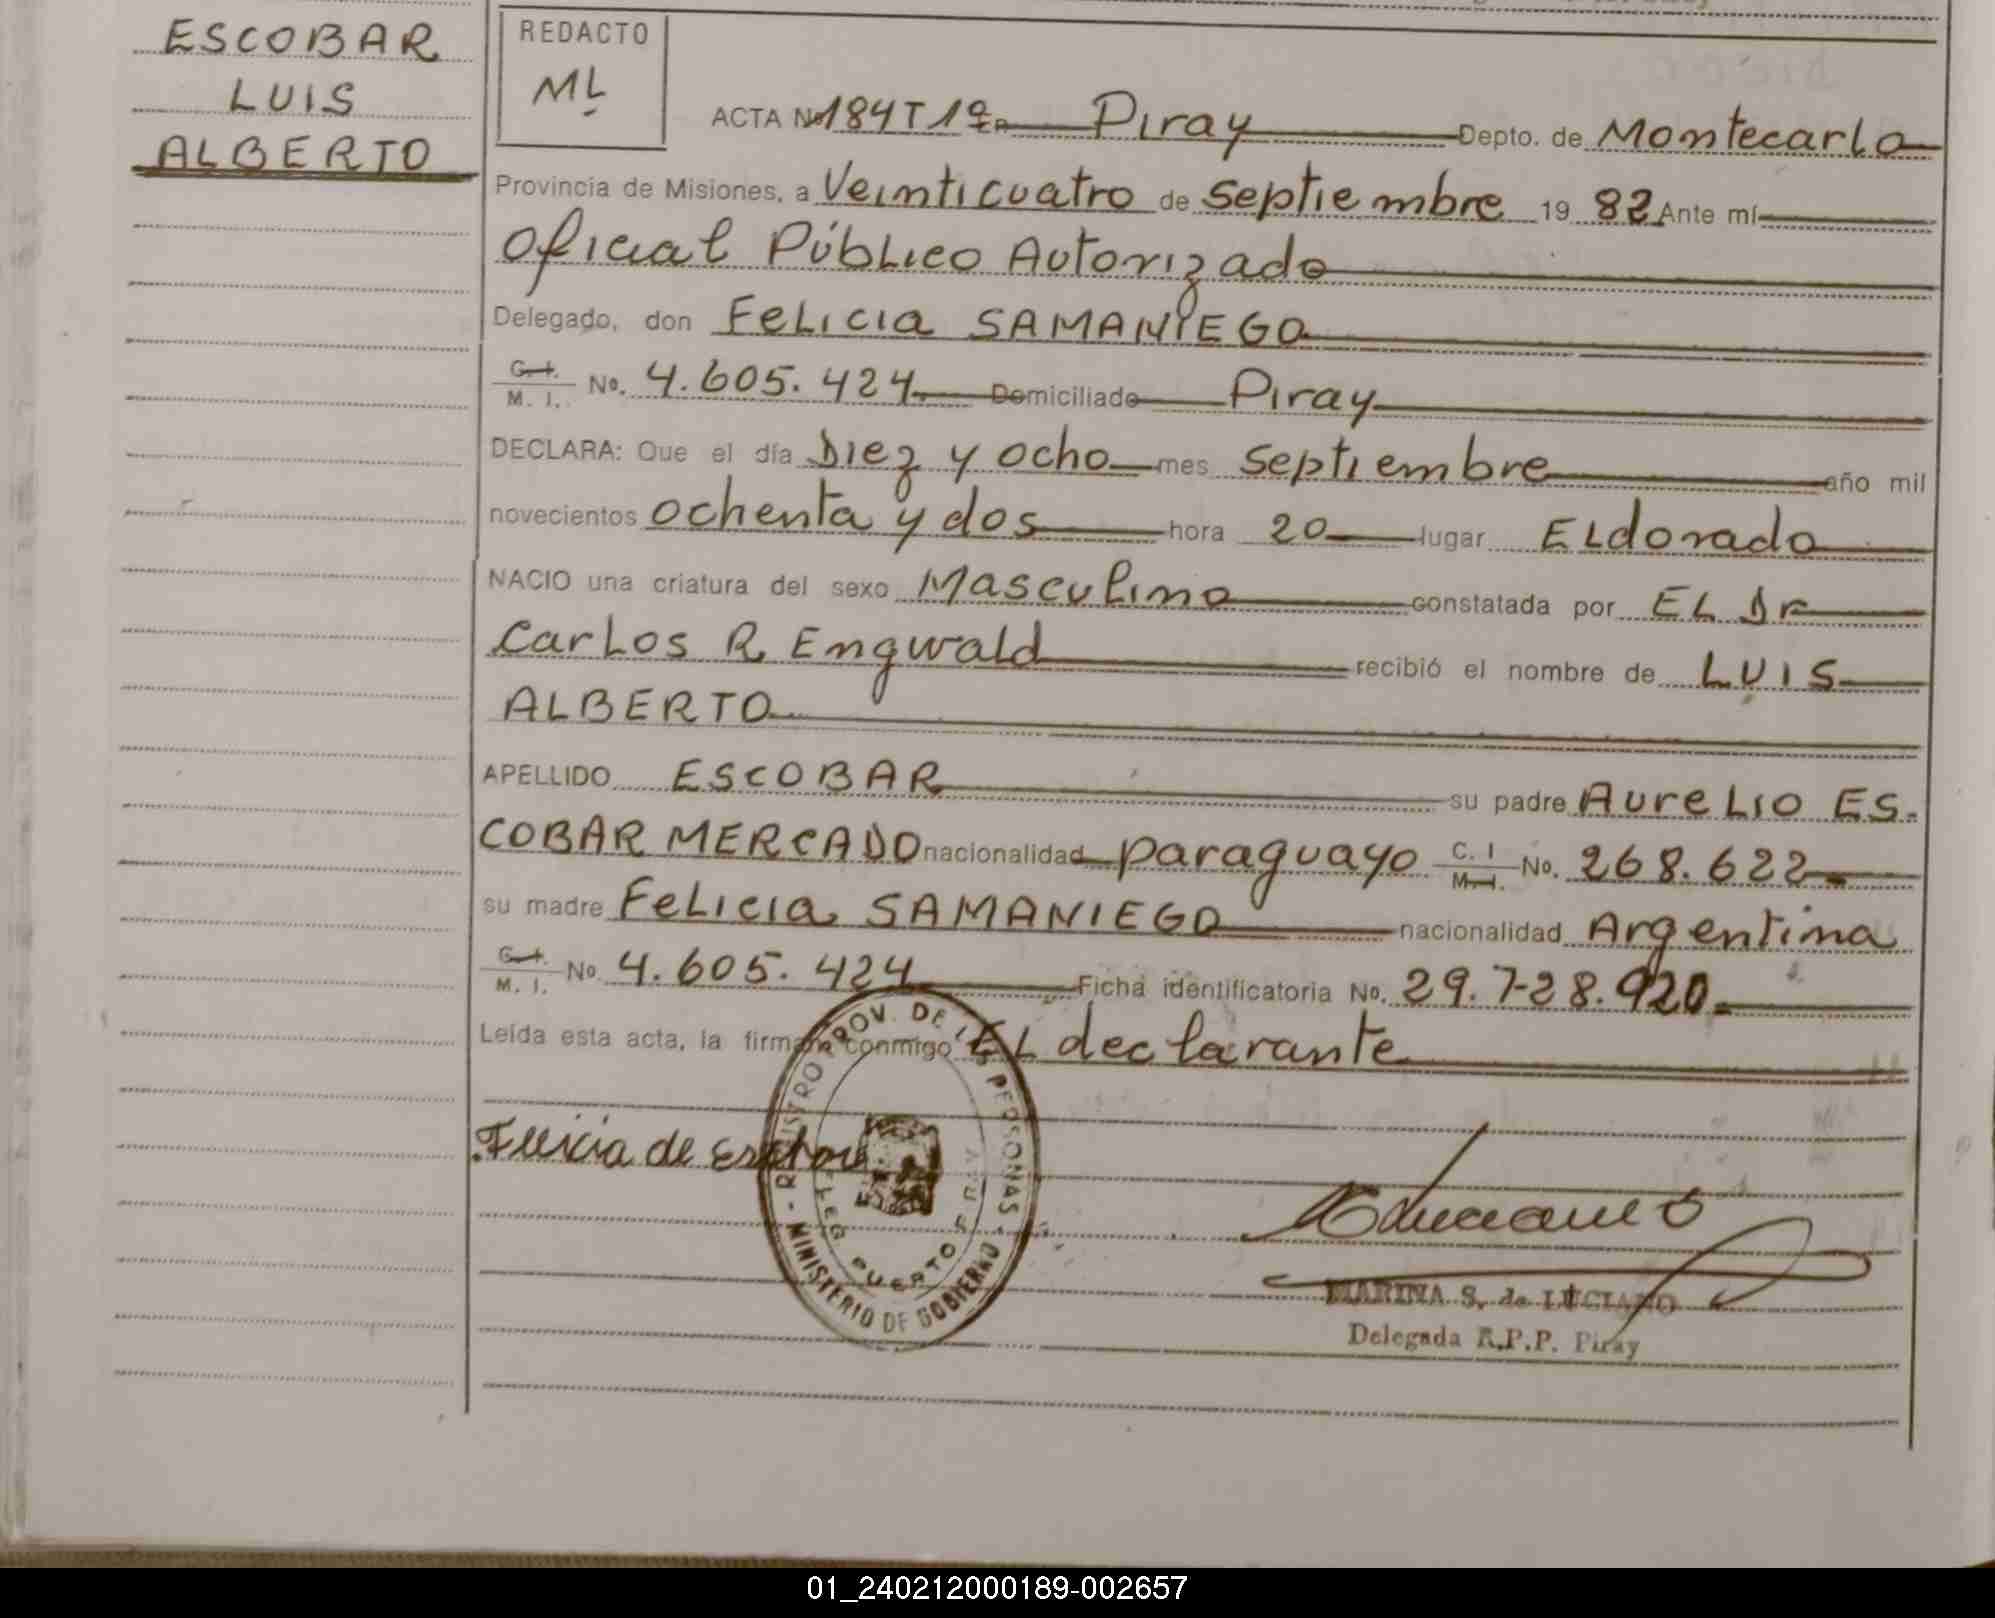 ESCOBAR
LUIS
ALBERTO
REDACTO
ML
ACTA No 184 T 1º Piray Depto. de Montecarlo
Provincia de Misiones, a Veinticuatro de Septiembre 19 82 Ante mí
Oficial Público Autorizado
Delegado, don Felicia SAMANIEGO
C. I.
M. I. No. 4.605.424 Domiciliado Piray
DECLARA: Que el día Diez y ocho mes Septiembre año mil
novecientos ochenta y dos hora 20 lugar ELdorado
NACIO una criatura del sexo Masculino constatada por EL Dr
Carlos R. Engwald recibió el nombre de LUIS
ALBERTO
APELLIDO ESCOBAR su padre Aurelio ES-
COBAR MERCADO nacionalidad paraguayo C. I
M. I. No. 268.622
su madre Felicia SAMANIEGO nacionalidad Argentina
C. I.
M. I. No. 4.605.424 Ficha identificatoria No. 29.728.920
Leída esta acta, la firman conmigo EL declarante
Felicia de Escobar
REGISTRO PROV. DE LAS PERSONAS
MINISTERIO DE GOBIERNO
PUERTO
MARINA S. de LUCIANO
Delegada R.P.P. Piray
01_240212000189-002657